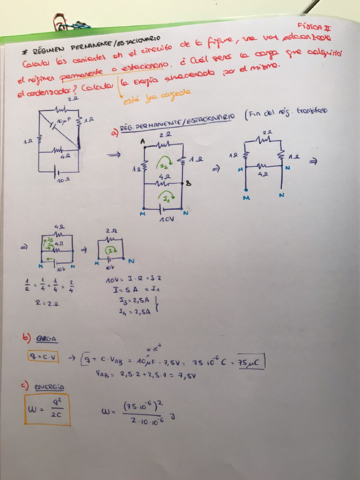 FÍSICA II
* RÉGIMEN PERMANENTE/ESTACIONARIO
Calcular las corrientes en el circuito de la figura, una vez alcanzado
el régimen permanente o estacionario. ¿Cuál será la carga que adquirirá
el condensador? Calcular la energía almacenada por el mismo.
está ya cargado
a) RÉG. PERMANENTE/ESTACIONARIO (Fin del rég. transitorio)
2Ω
10μF
1Ω
1Ω
4Ω
10V
⇒
A
2Ω
1Ω
1Ω
I2
4Ω
B
I1
M
N
10V
⇒
2Ω
1Ω
1Ω
4Ω
M
N
⇒
⇒
4Ω
4Ω
M
N
10V
→
2Ω
I
M
N
10V
1/R = 1/4 + 1/4 = 2/4
R = 2Ω
10V = I·R = I·2
I = 5A = I1
I3 = 2,5A
I4 = 2,5A
b) CARGA
q = C·V → q = C·VAB = 10μF · 7,5V = 75·10⁻⁶ C = 75μC
VAB = 2,5·2 + 2,5·1 = 7,5V
c) ENERGÍA
W = q²/2C W = (75·10⁻⁶)²/2·10·10⁻⁶ J